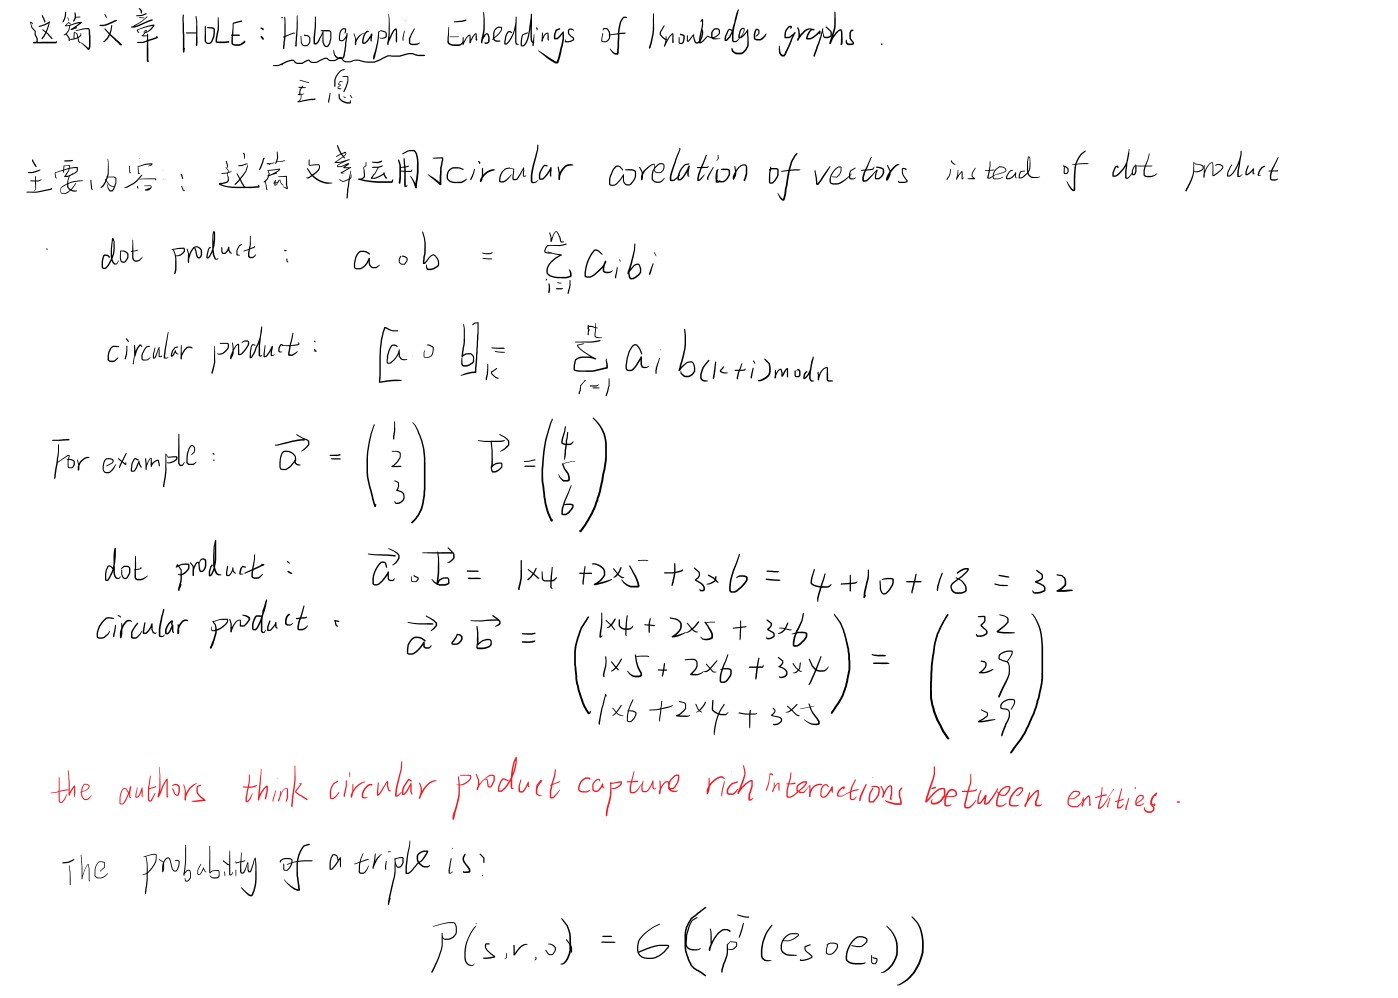 这篇文章 HOLE: Holographic Embeddings of Knowledge graphs.
主息
主要内容: 这篇文章运用了circular corelation of vectors instead of dot product
dot product: a∘b = ∑_{i=1}^{n} a_i b_i
circular product: [a∘b]_k = ∑_{i=1}^{n} a_i b_{(k+i)modn}
For example: \vec{a} = (1 2 3) \vec{b} = (4 5 6)
dot product: \vec{a}∘\vec{b} = 1×4+2×5+3×6 = 4+10+18 = 32
circular product: \vec{a}∘\vec{b} = (1×4+2×5+3×6
1×5+2×6+3×4
1×6+2×4+3×5) = (32
29
29)
the authors think circular product capture rich interactions between entities.
The probability of a triple is:
P(s,r,o) = σ(r_p^T(e_s∘e_o))